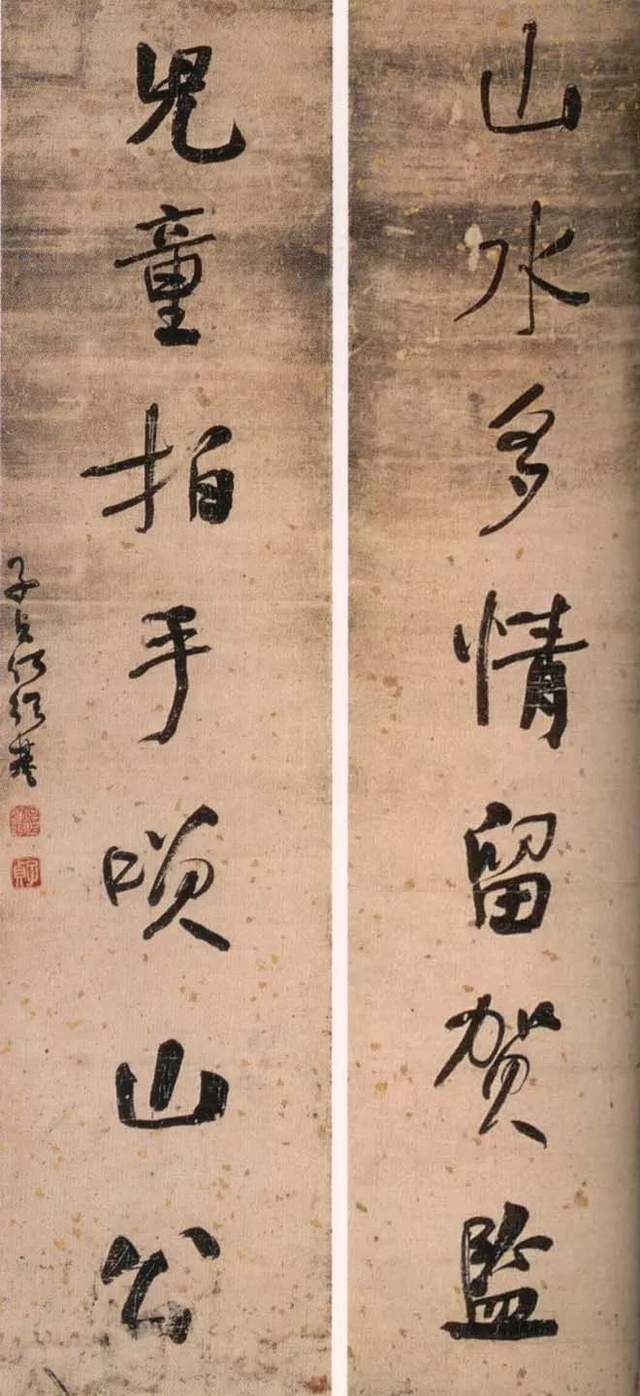 山水多情留贺監
兒童拍手唤山公
子貞何紹基
子貞